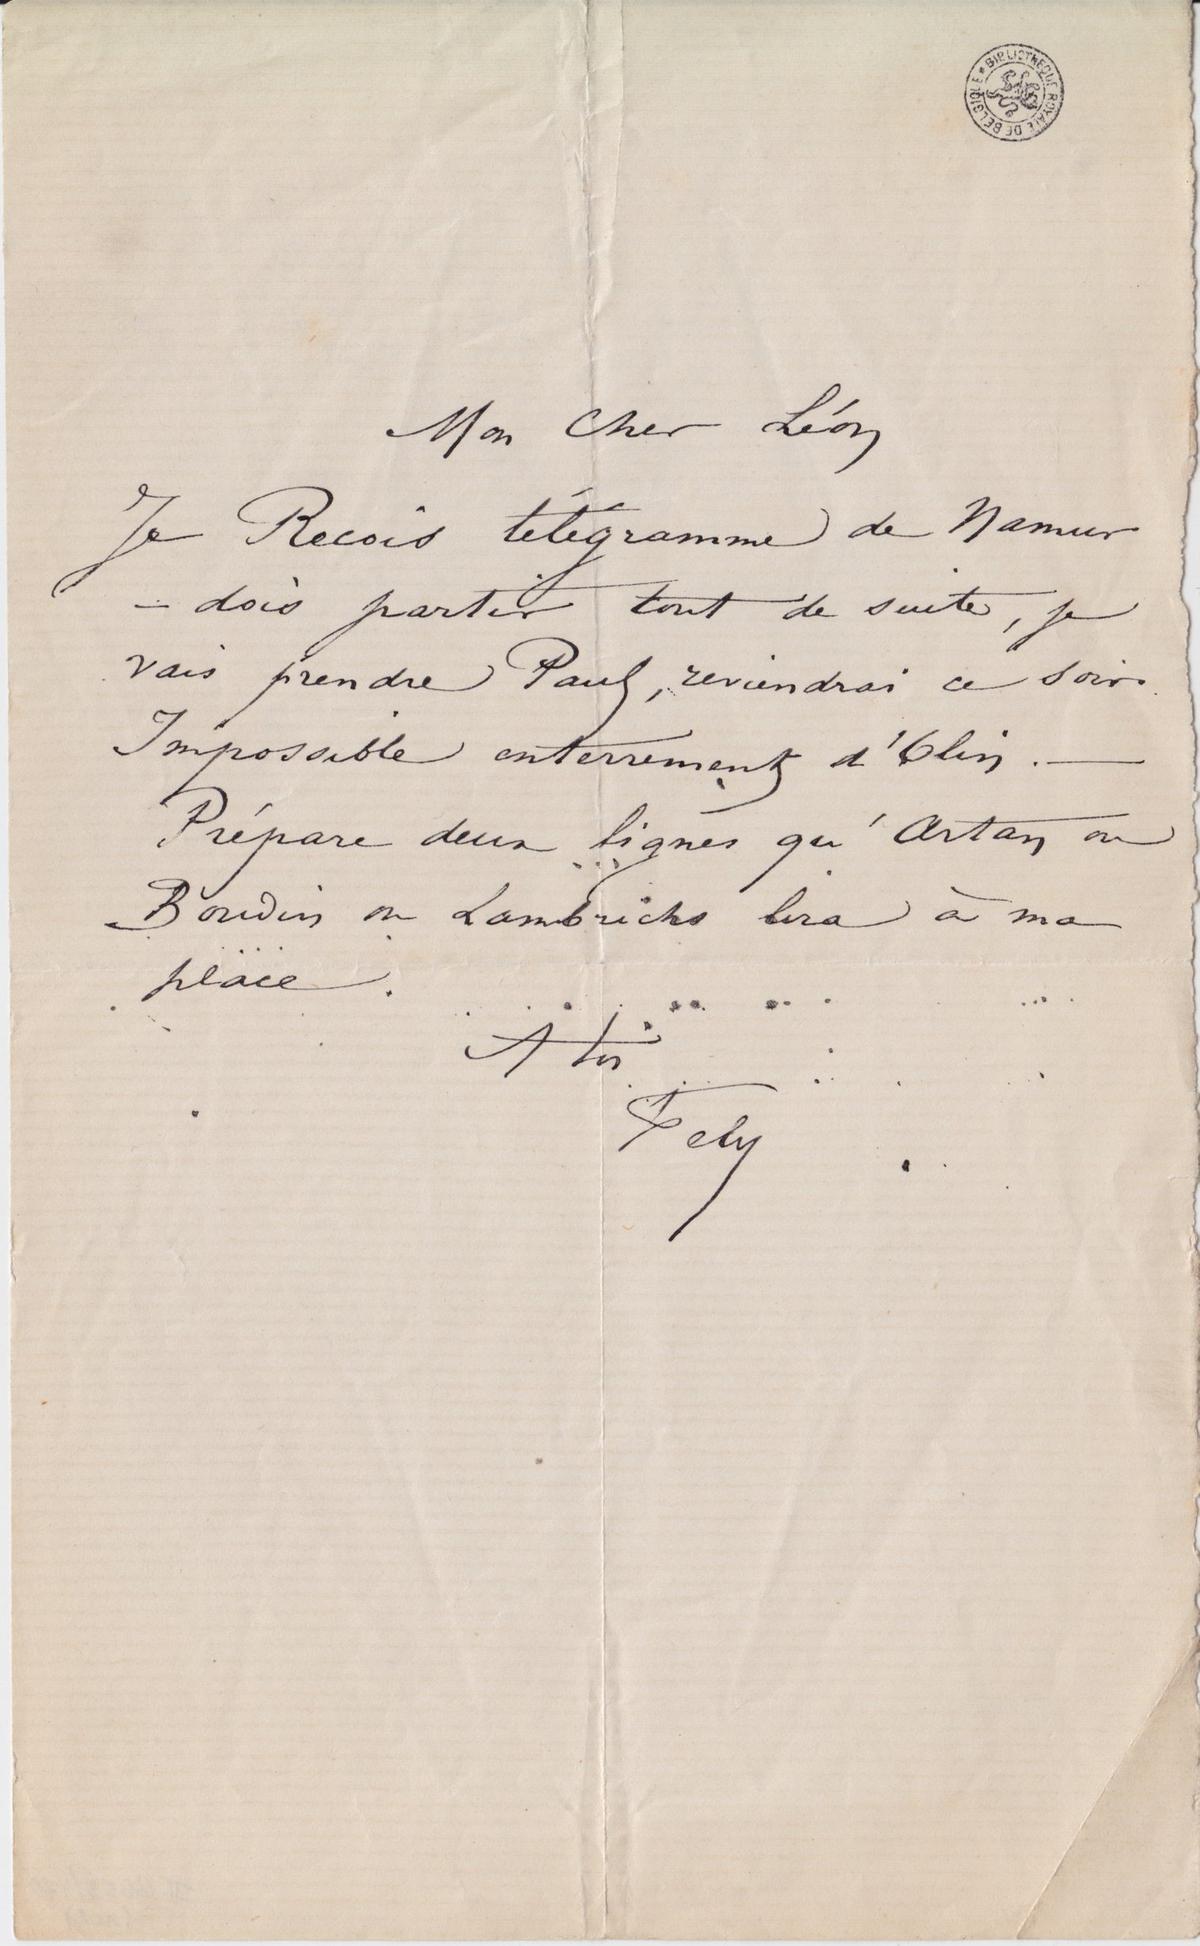 BIBLIOTHEQUE ROYALE DE BELGIQUE
Mon Cher Léon
Je Recois télégramme de Namur
- dois partir tout de suite, je
vais prendre Paul, reviendrai ce soir.
Impossible enterrement d'Olin. —
Prépare deux lignes qu'Artan ou
Bouvin ou Lambrichs lira à ma
place.
A toi
Fely